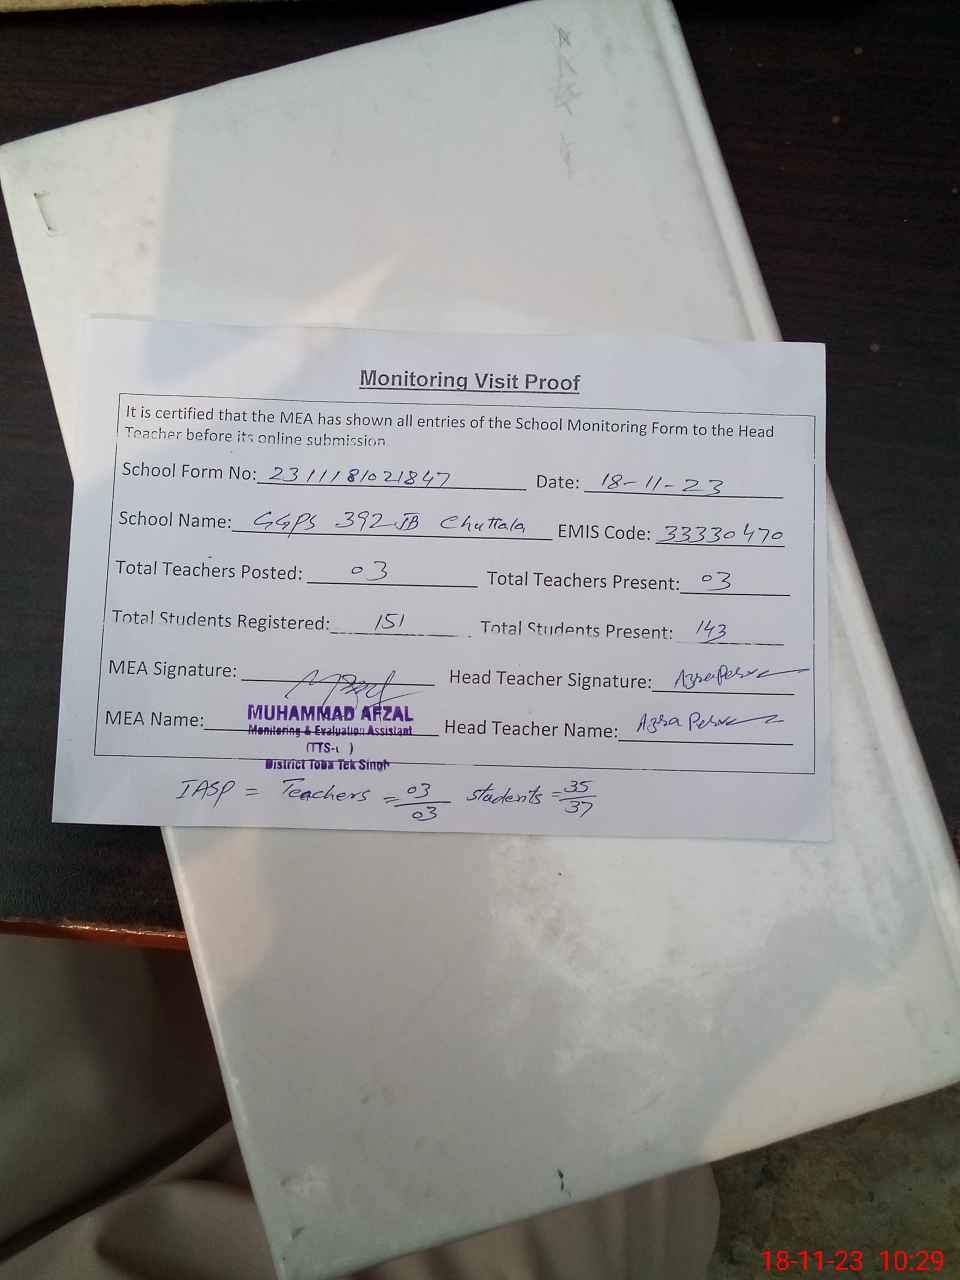 Monitoring Visit Proof
It is certified that the MEA has shown all entries of the School Monitoring Form to the Head
Teacher before its online submission.
School Form No: 23111181021847 Date: 18-11-23
School Name: GGPS 392 JB Chuttala EMIS Code: 33330470
Total Teachers Posted: 03 Total Teachers Present: 03
Total Students Registered: 151 Total Students Present: 143
MEA Signature: Head Teacher Signature: Azra
MEA Name: MUHAMMAD AFZAL Head Teacher Name: Azra
Monitoring & Evaluation Assistant
District Toba Tek Singh
IASP = Teachers = 03/03 students = 35/37
18-11-23 10:29